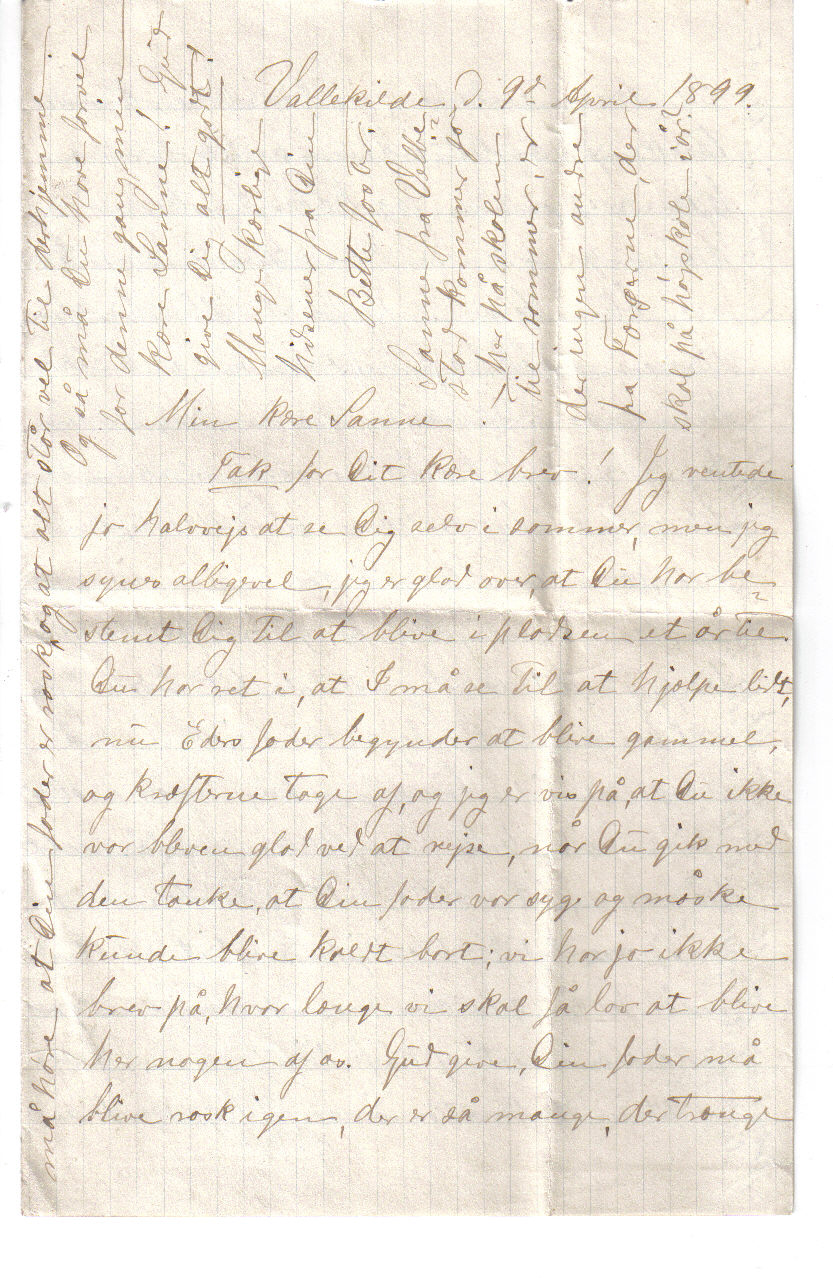 Vallekilde d. 9d April 1899.
Min kære Sanne.
Tak for Dit kære brev! Jeg ventede
jo halvvejs at se Dig selv i sommer, men jeg
synes alligevel, jeg er glad over, at Du har be-
stemt Dig til at blive i pladsen et år til.
Du har ret i, at I må se til at hjælpe lidt,
nu Eders fader begynder at blive gammel,
og kræfterne tage af, og jeg er vis på, at Du ikke
var bleven glad ved at rejse, når Du gik med
den tanke, at Din fader var syg og måske
kunde blive kaldt bort; vi har jo ikke
brev på, hvor længe vi skal få lov at blive
her nogen af os. Gud give, Din fader må
blive rask igen, der er så mange, der trænge
må høre, at Din fader er rask, og at alt står vel til derhjemme.
Og så må Du have farvel
for denne gang min
kære Sanne! Gud
give Dig alt godt!
Mange kærlige
hilsener fra Din
Bette
Sanne fra Velbe-
stad kommer jo
her på skolen
til sommer, er
der ingen andre
fra Færøerne, der
skal på højskole i år?